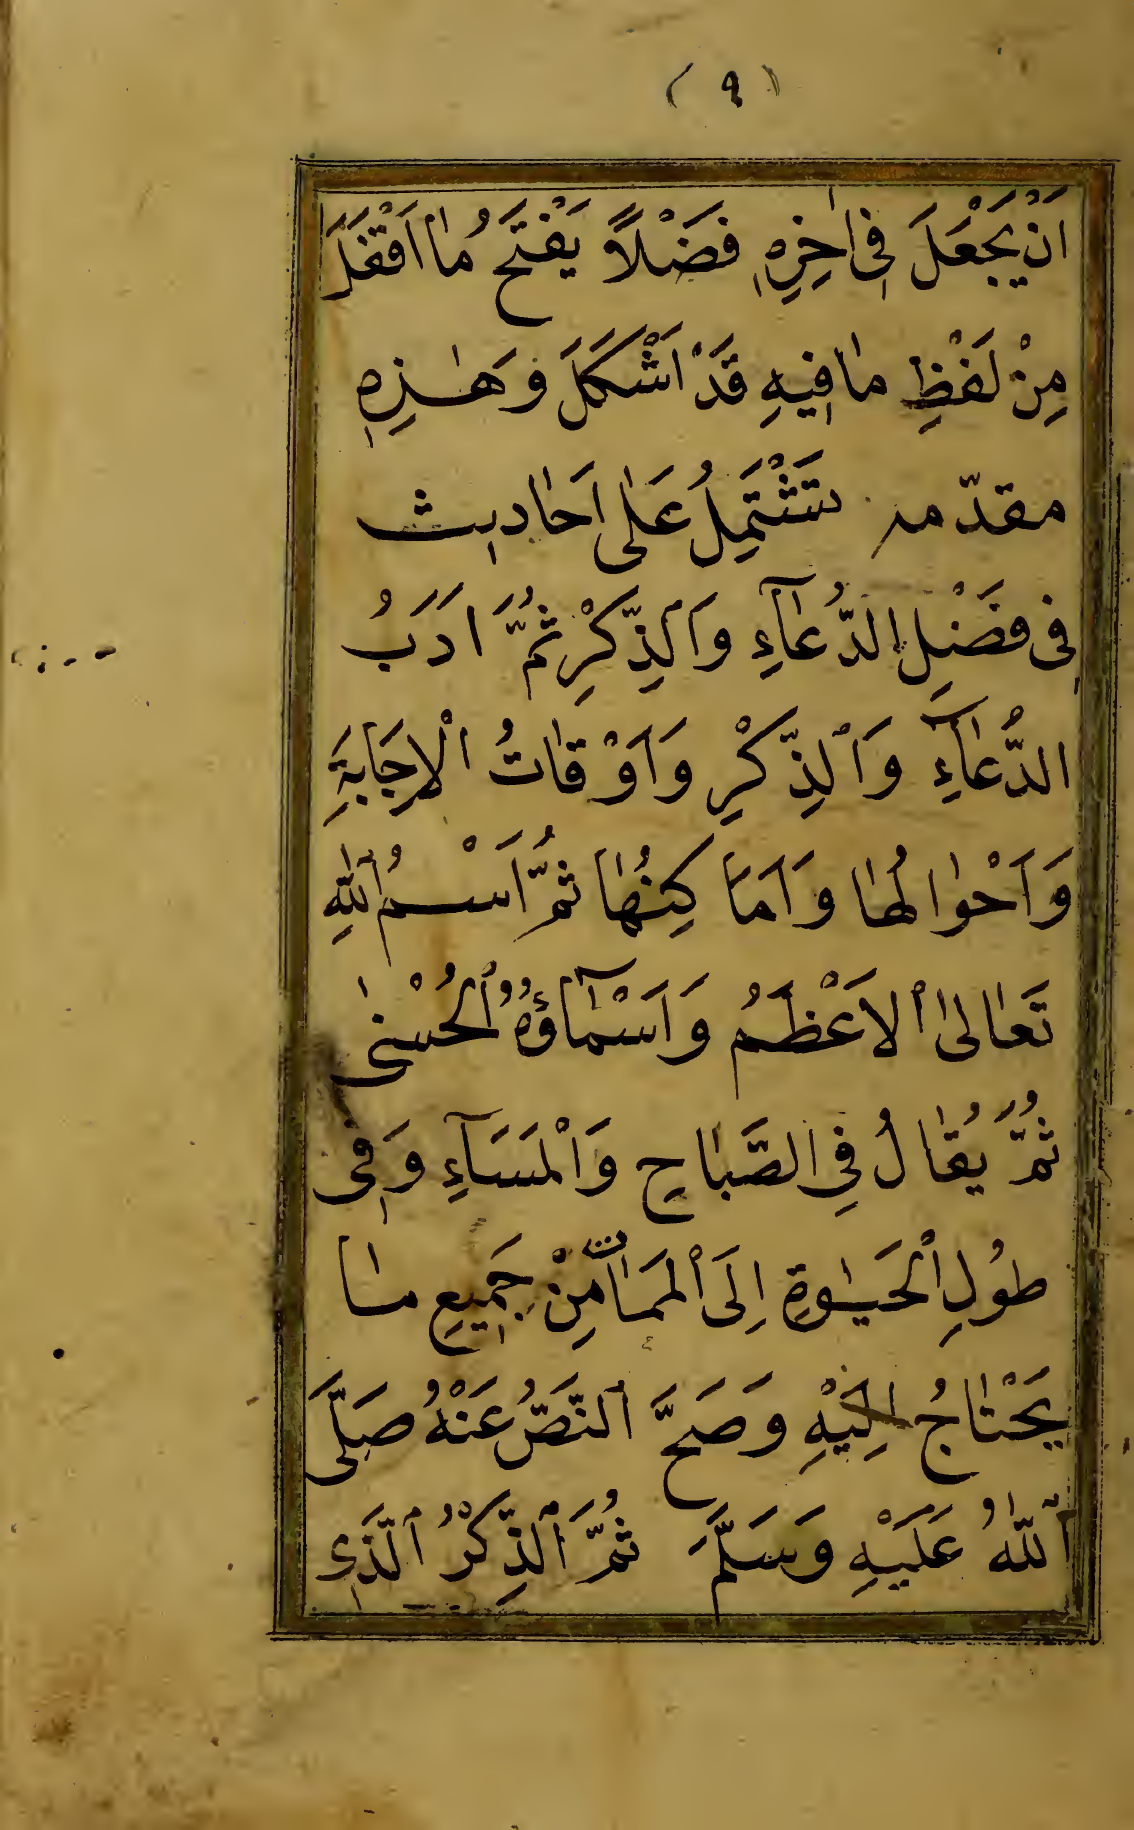 (٩)
اَنْ يَجْعَلَ فِى اٰخِرِهٖ فَضْلاً يَفْتَحُ مٰا اَقْفَلَ
مِنْ لَفْظِ مٰا فِيهِ قَدْ اَشْكَلَ وَهٰذِهٖ
مقدّمه تَشْتَمِلُ عَلٰى اَحٰادِيث
فِى فَضْلِ الدُّعٰآءِ وَالذِّكْرِ ثُمَّ اَدَبُ
الدُّعٰآءِ وَالذِّكْرِ وَاَوْقٰاتُ الْاِجَابَةِ
وَاَحْوٰالُهٰا وَاَمَاكِنُهٰا ثُمَّ اَسْمُ اللّٰهِ
تَعٰالىٰ الاَعْظَمُ وَاَسْمٰآؤُهُ الْحُسْنىٰ
ثُمَّ يُقٰالُ فِى الصَّبٰاحِ وَالْمَسَآءِ وَفِى
طُولِ الْحَيٰوةِ اِلَى الْمَمٰاتِ مِنْ جَمِيعِ مٰا
يَحْتٰاجُ اِلَيْهِ وَصَحَّ النَّصُّ عَنْهُ صَلَّى
اللّٰهُ عَلَيْهِ وَسَلَّمَ ثُمَّ الذِّكْرُ الَّذِى